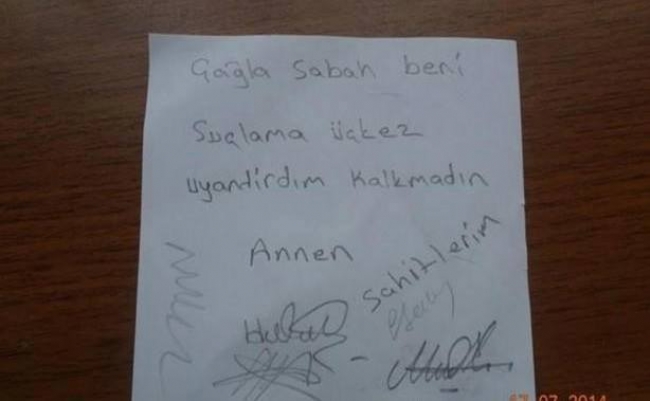 Çağla Sabah beni
Suçlama üçkez
uyandirdım Kalkmadın
Annen
Şahitlerim
17.07.2014